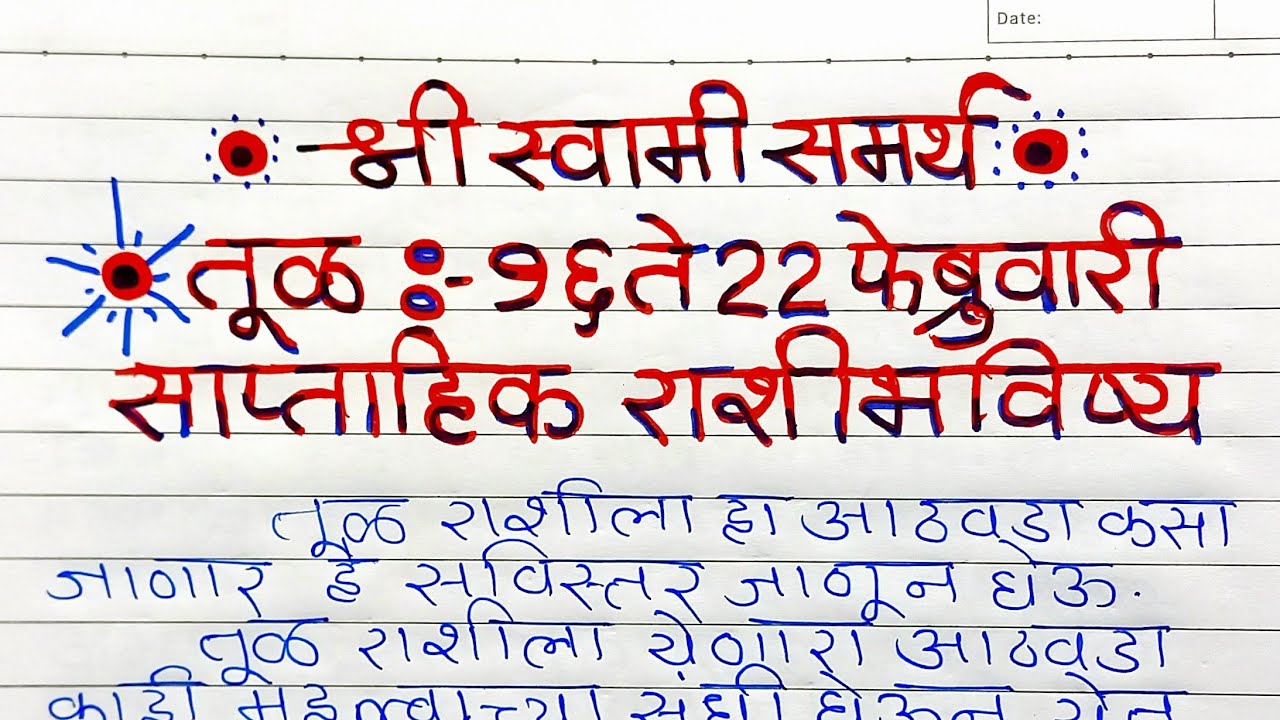 Date:
श्री स्वामी समर्थ
तूळ :- १६ ते 22 फेब्रुवारी
साप्ताहिक राशीभविष्य
तूळ राशीला हा आठवडा कसा
जाणार हे सविस्तर जाणून घेऊ.
तूळ राशीला येणारा आठवडा
काही महत्वाच्या संधी घेऊन येत